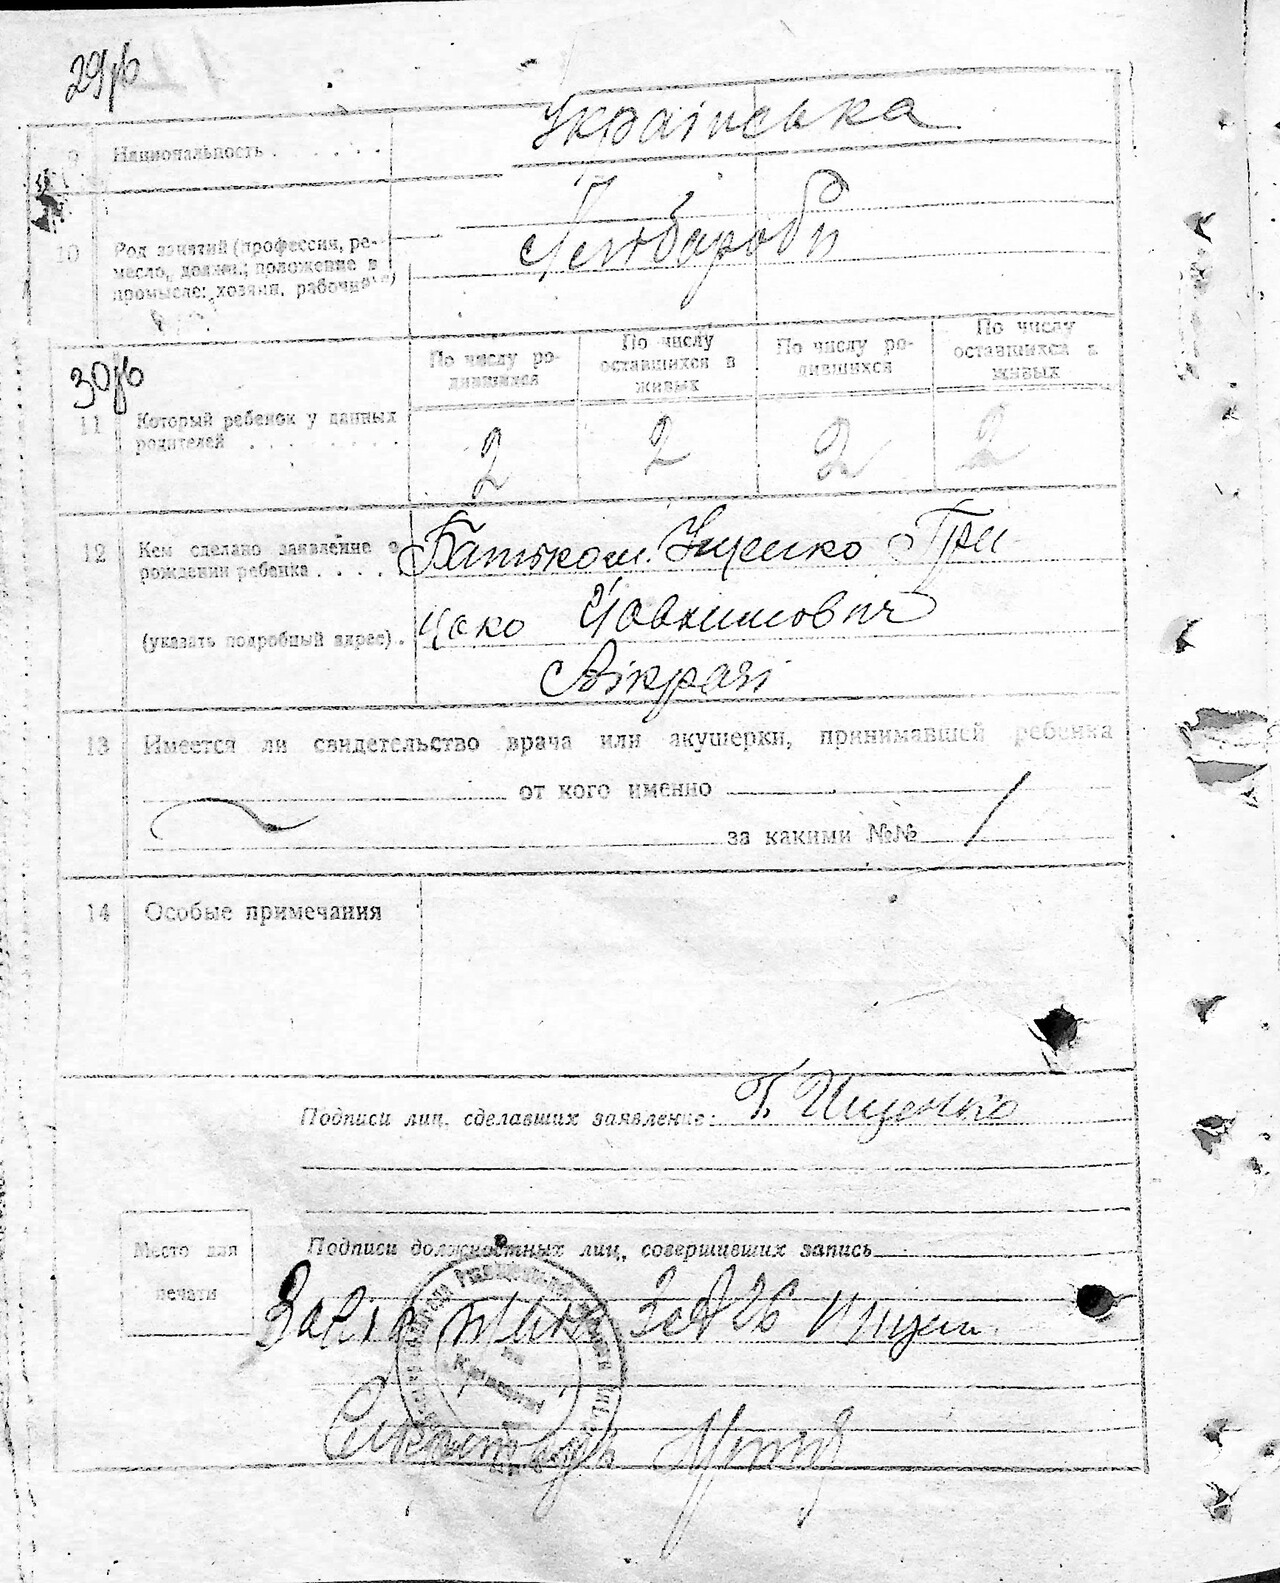 29
9 Национальность . . . . . . Українська
10 Род занятий (профессия, ре-
месло, должн.; положение в
промысле: хозяин, рабочий
Хлібороби
30
По числу ро-
дившихся
По числу
оставшихся в
живых
По числу ро-
дившихся
По числу
оставшихся в
живых
11 Который ребенок у данных
родителей . . . . . . . .
2 2 2 2
12 Кем сделано заявление о
рождении ребенка . . . .
Батьком Іщенко Гри
(указать подробный адрес) .
цько Йовхимович
13 Имеется ли свидетельство врача или акушерки, принимавшей ребенка
от кого именно
за какими №№
14 Особые примечания
Подписи лиц, сделавших заявление: Г. Ищенко
Подписи должностных лиц, совершивших запись
Место для
печати
Секретарь